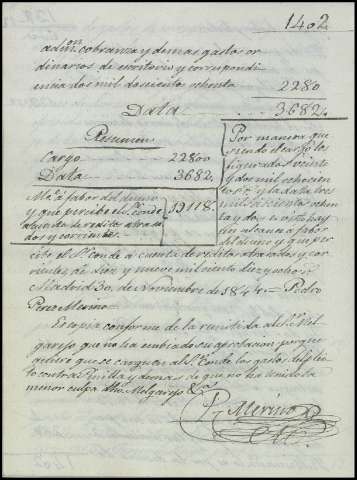 1402
admon. cobranza y demas gastos or
dinarios de escritorio y correspondi
encia dos mil doscientos ochenta 2280
Data 3682.
Resumen
Cargo 22800
Data 3682.
Mas á fabor del dueño
y que percibe el Sr. Conde 19118.
á cuenta de reditos atrasa
dos y corrientes.
Por manera que
siendo el cargo los
figurados veinte
y dos mil ochocien
tos rs. y la data tres
mil seiscientos ochen
ta y dos es visto hay
un alcance á fabor
del dueño y que per
cibe el Sr. Conde á cuenta de reditos atrasados y cor
rientes, de diez y nueve mil ciento diez y ocho rs.
Madrid 30, de Noviembre de 1844 = Pedro
Perez Merino.
Es copia conforme de la remitida al Sr. Mel
garejo que no ha embiado su aprobacion porque
quiere que se carguen al Sr. Conde los gastos del plei
to contra Pinilla y demas, de que no ha tenido la
menor culpa dho. Melgarejo &a
P. Merino